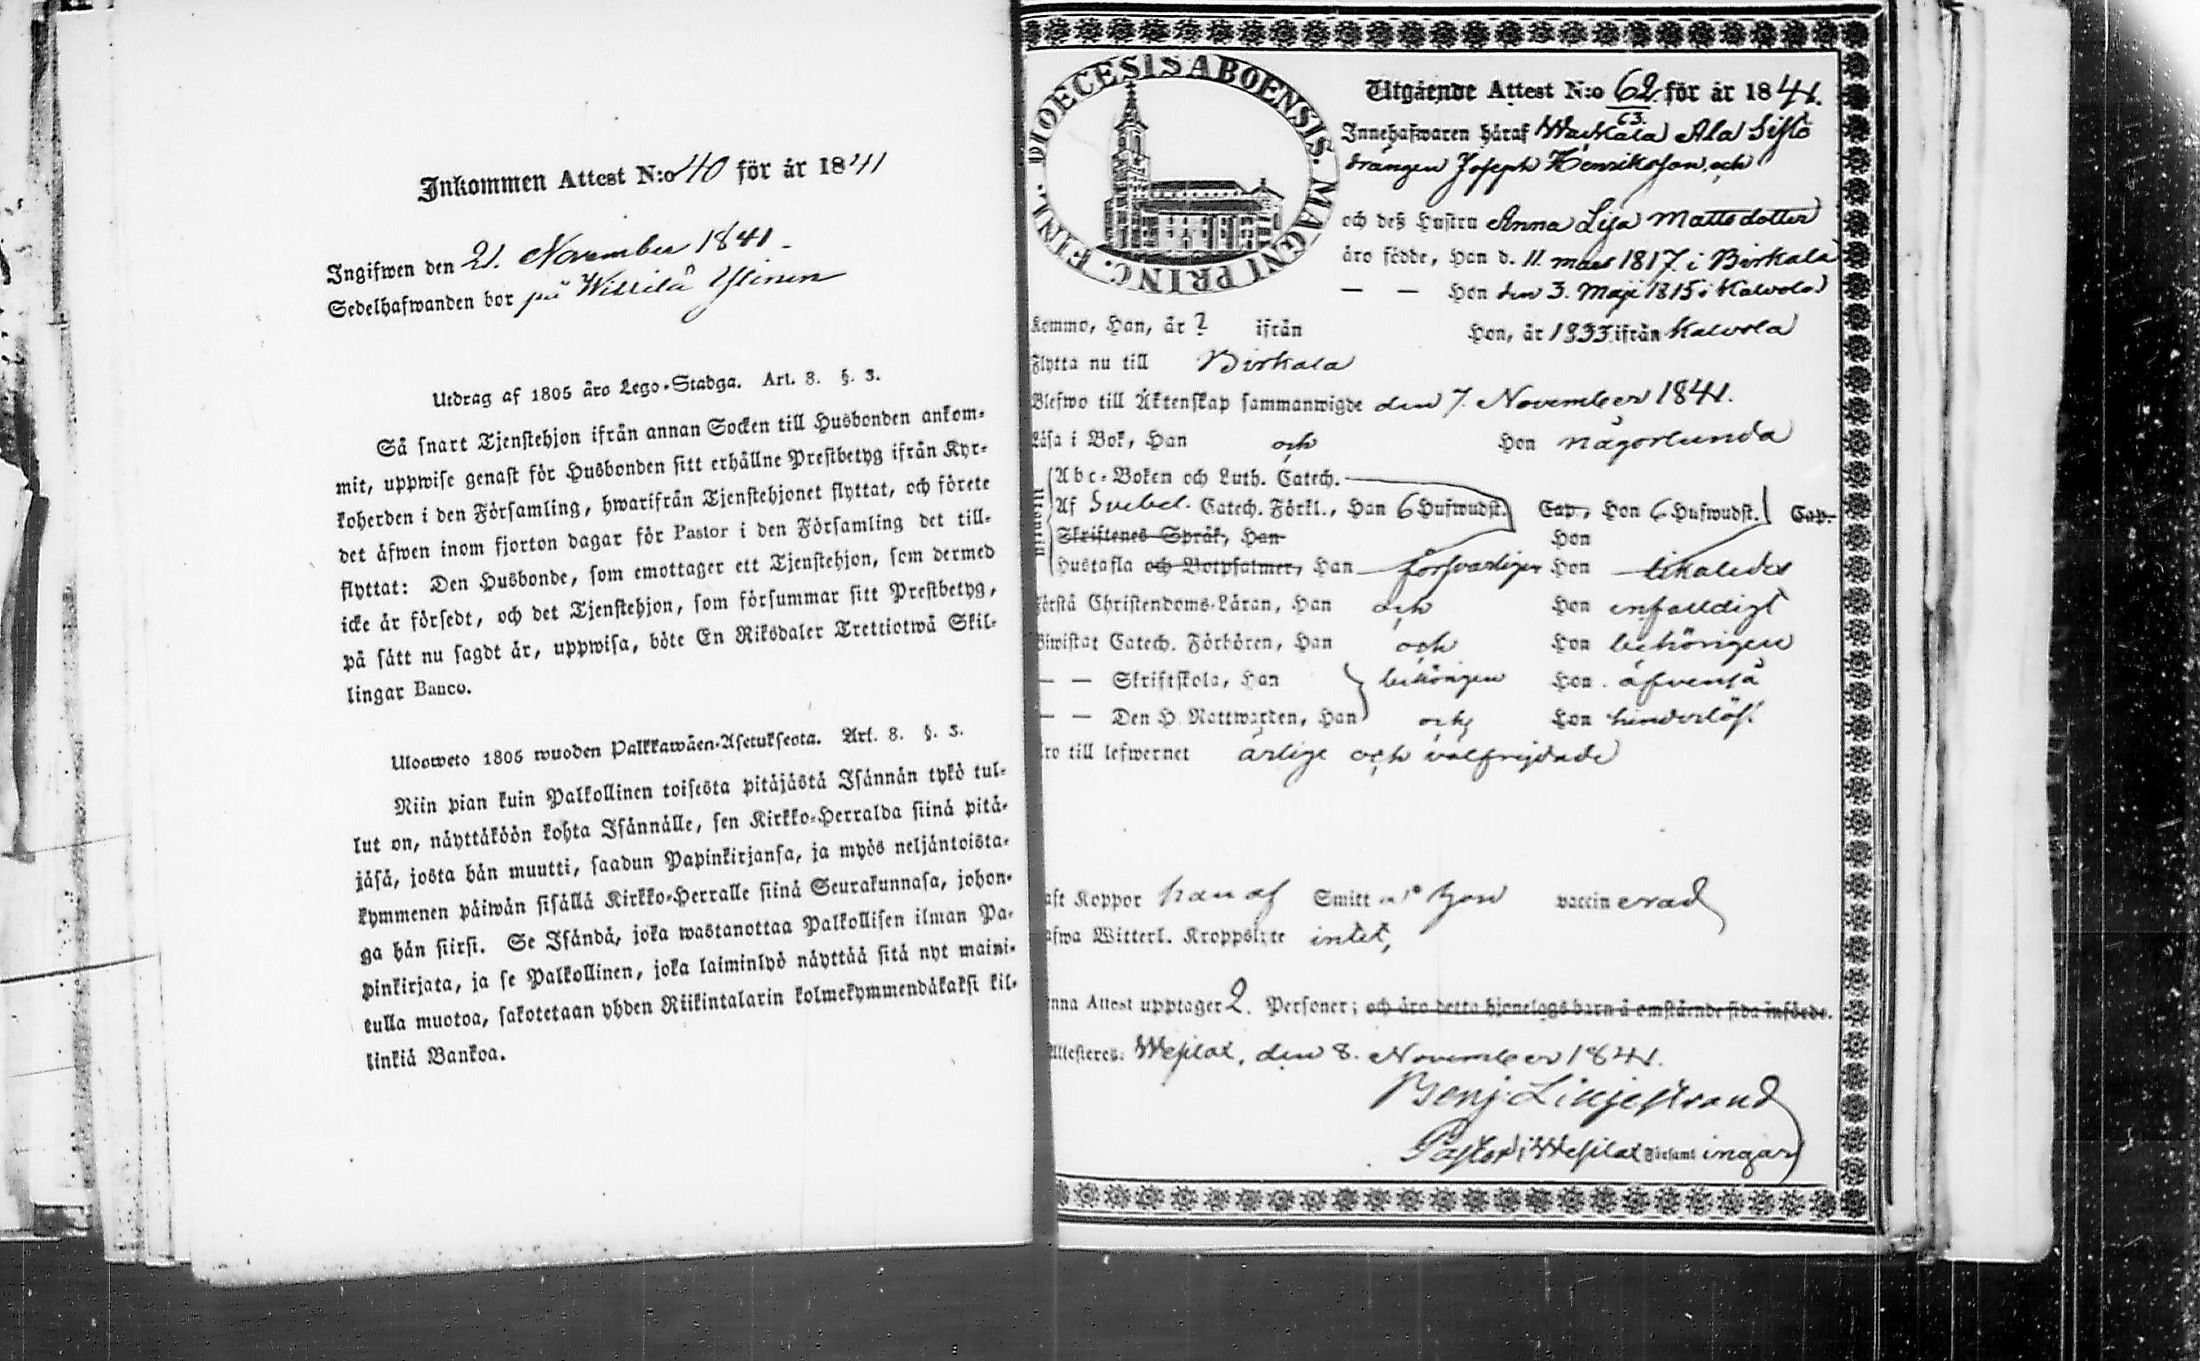 Inkommen Attest N:o 40 för år 1841
Ingifwen den 21. November 1841.
Sedelhafwanden bor på Willilä Ylinen
Utdrag af 1805 års Lego-Stadga. Art. 8. §. 3.
Så snart Tjenstehjon ifrån annan Socken till Husbonden ankom-
mit, uppwise genast för Husbonden sitt erhållne Prestbetyg ifrån Kyr-
koherden i den Församling, hwarifrån Tjenstehjonet flyttat, och förete
det äfwen inom fjorton dagar för Pastor i den Församling det till-
flyttat: Den Husbonde, som emottager ett Tjenstehjon, som dermed
icke är försedt, och det Tjenstehjon, som försummar sitt Prestbetyg,
på sätt nu sagdt är, uppwisa, böte En Riksdaler Trettiotwå Skil-
lingar Banco.
Ulosweto 1805 wuoden Palkkawäen-Asetuksesta. Art. 8. §. 3.
Niin pian kuin Palkollinen toisesta pitäjästä Isännän tykö tul-
lut on, näyttäköön kohta Isännälle, sen Kirkko-Herralda siinä pitä-
jäsä, josta hän muutti, saadun Papinkirjansa, ja myös neljäntoista-
kymmenen päiwän sisällä Kirkko-Herralle siinä Seurakunnasa, johon-
ga hän siirsi. Se Isändä, joka wastanottaa Palkollisen ilman Pa-
pinkirjata, ja se Palkollinen, joka laiminlyö näyttää sitä nyt maini-
tulla muotoa, sakotetaan yhden Riikintalarin kolmekymmendäkaksi kil-
linkiä Bankoa.
DIOECESIS ABOENSIS. MAGNI PRINC. FINL.
Utgående Attest N:o 62 för år 1841.
63.
Innehafwaren häraf Wackala Ala Sifto
drängen Joseph Henriksson, och
och deß Hustru Anna Lisa Mattsdotter
äro födde, Han d. 11. mars 1817. i Birkala
— — Hon den 3. Maji 1815 i Kalvola
Kommo, Han, år ? ifrån Hon, år 1833 ifrån Kalvola
Flytta nu till Birkala
Blefwo till Äktenskap sammanwigde den 7. November 1841.
Läsa i Bok, Han och Hon någorlunda
Utantill
Abc-Boken och Luth. Catech.
Af Svebel. Catech. Förkl., Han 6 Hufwudst. Cap., Hon 6 Hufwudst. Cap.
Skriftenes Språk, Han Hon
Hustafla och Botpsalmer, Han försvarligen Hon likaledes
Förstå Christendoms-Läran, Han och Hon enfalldigt
Biwistat Catech. Förhören, Han och Hon behörigen
— — Skriftskola, Han behörigen Hon äfvenså
— — Den H. Nattwarden, Han och Hon hinderlöst.
Äro till lefwernet ärlige och välfrejdade
Haft Koppor han af Smitt Hon vaccinerad
Hafwa Witterl. Kroppslyte intet,
Denna Attest upptager 2. Personer; och äro detta hjonelags barn å omstående sida införde.
Attesteres. Wesilax, den 8. November 1841.
Benj. Liljestrand
Pastor i Wesilax Församlingar